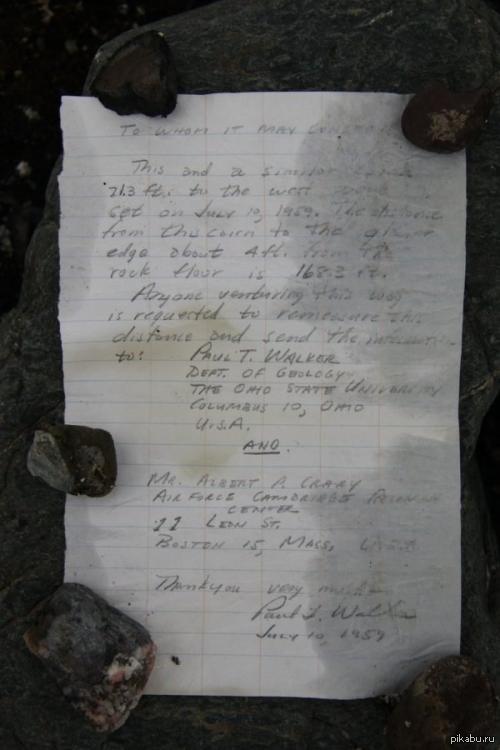 TO WHOM IT MAY CONCERN
This and a similar cairn
21.3 ft. to the west were
set on July 10, 1959. The distance
from this cairn to the glacier
edge about 4 ft. from the
rock floor is 168.3 ft.
Anyone venturing this way
is requested to remeasure this
distance and send the information
to: PAUL T. WALKER
DEPT. OF GEOLOGY
THE OHIO STATE UNIVERSITY
COLUMBUS 10, OHIO
U.S.A.
AND.
MR. ALBERT P. CRARY
AIR FORCE CAMBRIDGE RESEARCH
CENTER
11 LEON ST.
BOSTON 15, MASS, U.S.A.
Thankyou very much
Paul T. Walker
July 10, 1959
pikabu.ru